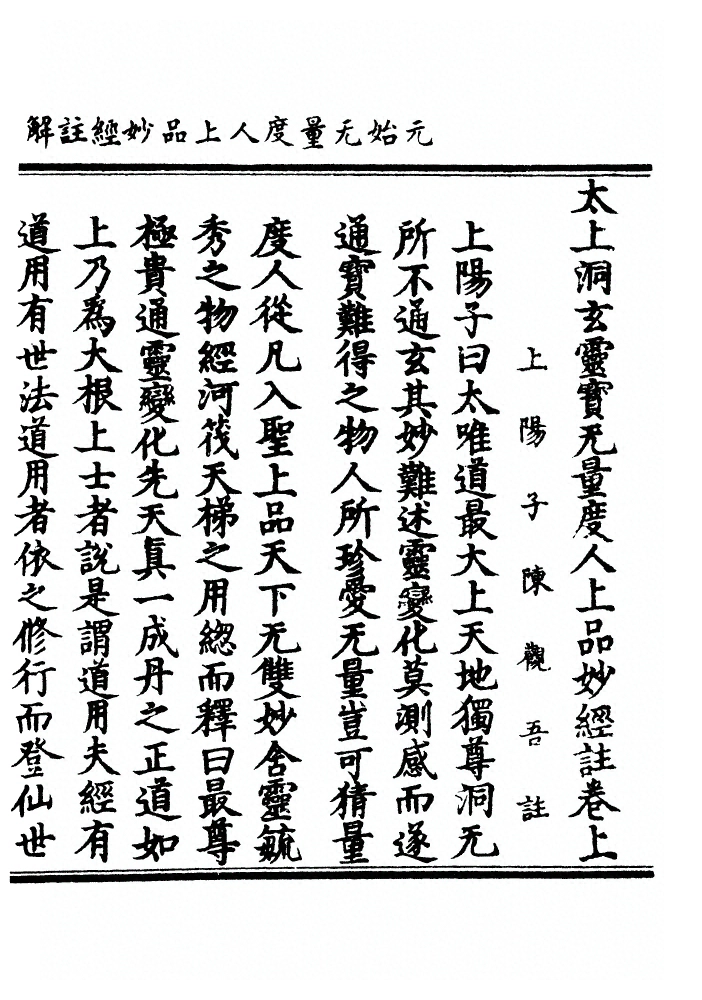 元始无量度人上品妙經註解
太上洞玄靈寶无量度人上品妙經註卷上
上陽子陳觀吾註
上陽子曰太唯道最大上天地獨尊洞无
所不通玄其妙難述靈變化莫測感而遂
通寶難得之物人所珍愛无量豈可猜量
度人從凡入聖上品天下无雙妙含靈毓
秀之物經河筏天梯之用緫而釋曰最尊
極貴通靈變化先天眞一成丹之正道如
上乃爲大根上士者說是謂道用夫經有
道用有世法道用者依之修行而登仙世